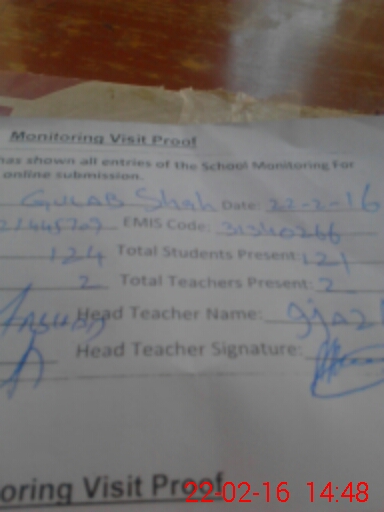 Monitoring Visit Proof
has shown all entries of the School Monitoring For
online submission.
GULAB Shah Date: 22-2-16
EMIS Code: 31340266
124 Total Students Present: 121
2 Total Teachers Present: 2
Head Teacher Name:
Head Teacher Signature:
oring Visit Proof
22-02-16 14:48